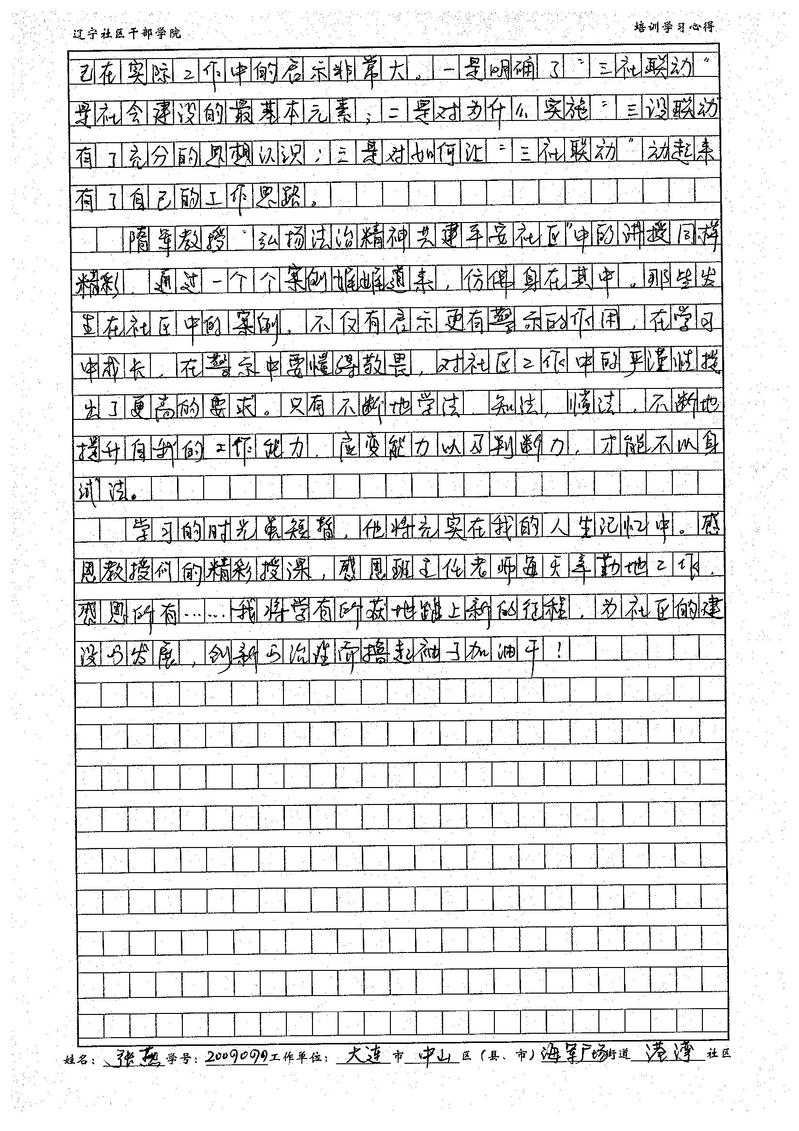 辽宁社区干部学院 培训学习心得
己在实际工作中的启示非常大。一是明确了“三社联动”
是社会建设的最基本元素；二是对为什么实施“三设联动
有了充分的思想认识；三是对如何让“三社联动”动起来
有了自己的工作思路。
隋军教授“弘扬法治精神共建平安社区”中的讲授同样
精彩，通过一个个案例娓娓道来，仿佛身在其中。那些发
生在社区中的案例，不仅有启示更有警示的作用，在学习
中成长，在警示中要懂得敬畏，对社区工作中的严谨性提
出了更高的要求。只有不断地学法、知法、懂法，不断地
提升自我的工作能力，应变能力以及判断力，才能不以身
试法。
学习的时光虽短暂，他将充实在我的人生记忆中。感
恩教授们的精彩授课，感恩班主任老师每天辛勤地工作，
感恩所有……我将学有所获地踏上新的征程，为社区的建
设与发展，创新与治理而撸起袖子加油干！
姓名：张燕 学号：2009099 工作单位：大连 市 中山 区（县、市）海军广场 街道 港湾 社区